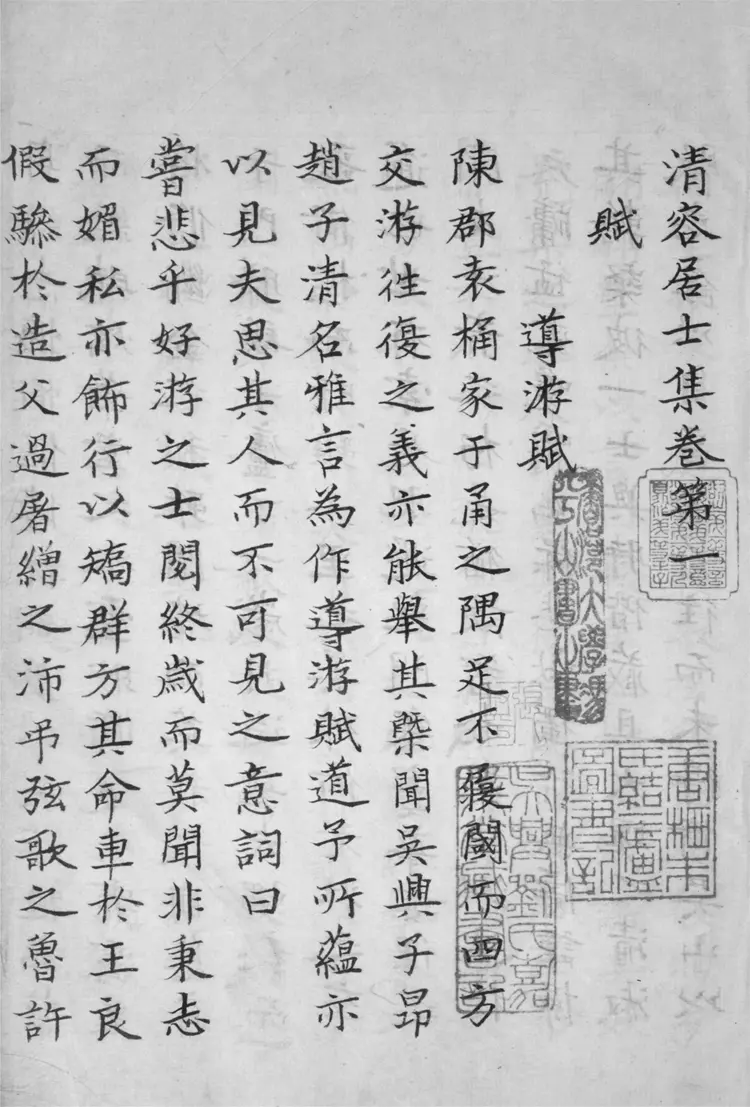 清容居士集卷第一
賦
導游賦
陳郡袁桷家于甬之隅足不履閾而四方
交游往復之義亦能舉其槩聞吳興子昂
趙子清名雅言為作導游賦道予所蘊亦
以見夫思其人而不可見之意詞曰
嘗悲乎好游之士閱終歲而莫聞非秉志
而媚私亦飾行以矯群方其命車於王良
假驂於造父過屠繒之沛弔弦歌之魯許
唐栖朱氏結一廬圖書記
吳興劉氏嘉業堂藏書記